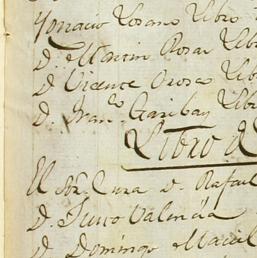 Ygnacio Lozano Libro
D. Marcos Rosas Libr
D Vicente Orosco Lib
D. Fran.co Garibay Libr
Libro d
El Sr. Cura D. Rafael
D. Julio Valencia
D. Domingo Macil